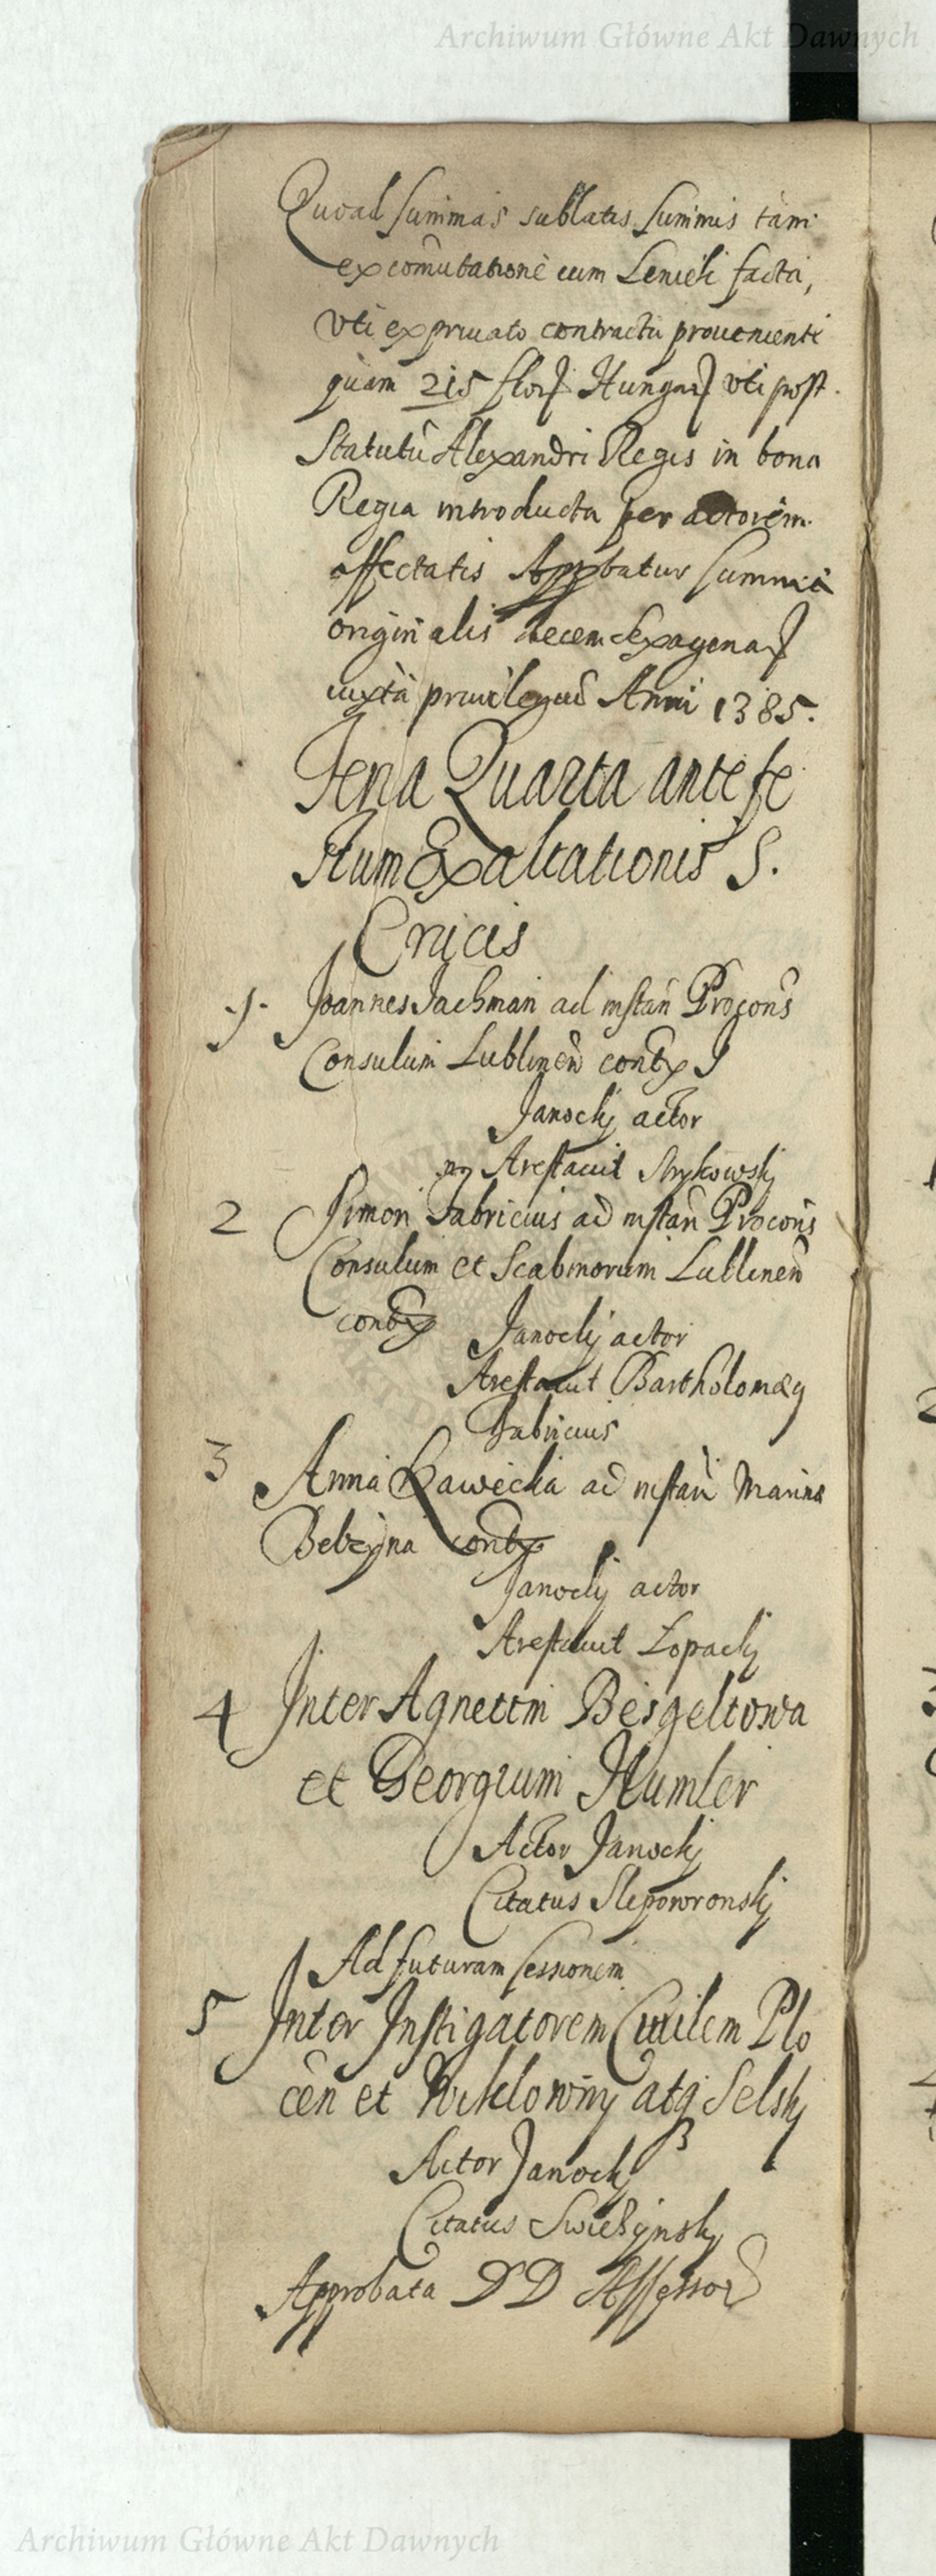 Archiwum Główne Akt Dawnych
Quoad summas sublatis summis tam
ex com̄utatione cum Lenieli facta,
vti ex priuato contractu prouenienti
quam 215 flor Hungar vti post
Statutū Alexandri Regis in bona
Regia introducta per actorem
affectatis Approbatur summa
originalis decem sexagenar
iuxta priuilegiū Anni 1385.
Feria Quarta ante fe
stum Exaltationis S.
Crucis
1. Joannes Jachman ad instan̄ Procons
Consulum Lublinen̄ contx
Janockj actor
Arestauit Strykowskj
2 Simon Fabricius ad instan̄ Procons
Consulum et Scabinorum Lublinen̄
contx Janockj actor
Arestauit Bartholomæg
Fabricius
3 Anna Kawecka ad instan̄ Marinæ
Belzyna contx
Janockj actor
Arestauit Lopackj
4 Inter Agnetem Beisgeltowa
et Georgium Humler
Actor Janockj
Citatus Slepowronskj
Ad futuram sessionem
5 Inter Instigatorem Ciuilem Plo
cen̄ et atq Selskj
Actor Janockj
Citatus
Approbata DD Assessor
Archiwum Główne Akt Dawnych